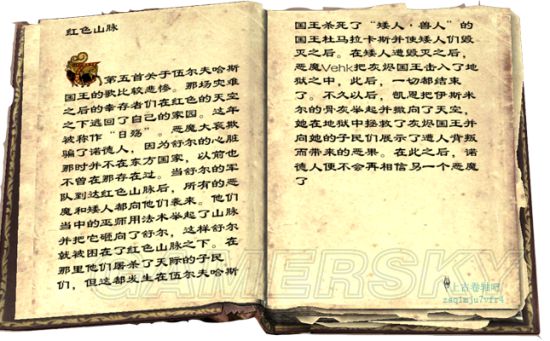 红色山脉
第五首关于伍尔夫哈斯
国王的歌比较悲惨。那场灾难
之后的幸存者们在红色的天空
之下逃回了自己的家园。这年
被称作“日殇”。恶魔大哀欺
骗了诺德人，因为舒尔的心脏
那时并不在东方国家，以前也
不曾在那存在过。当舒尔的军
队到达红色山脉后，所有的恶
魔和矮人都向他们袭来。他们
当中的巫师用法术举起了山脉
并把它砸向了舒尔，这样舒尔
就被困在了红色山脉之下。在
那里他们屠杀了天际的子民
们，但这都发生在伍尔夫哈斯
国王杀死了“矮人·兽人”的
国王杜马拉卡斯并使矮人们毁
灭之后。在矮人遭毁灭之后，
恶魔Vehk把灰烬国王击入了地
狱之中，此后，一切都结束
了。不久以后，凯恩把伊斯米
尔的骨灰举起并撒向了天空，
她在地狱中拯救了灰烬国王并
向她的子民们展示了遭人背叛
而带来的恶果。在此之后，诺
德人便不会再相信另一个恶魔
了
GAMERSKY
上古卷轴吧
zsqimju7vfr4